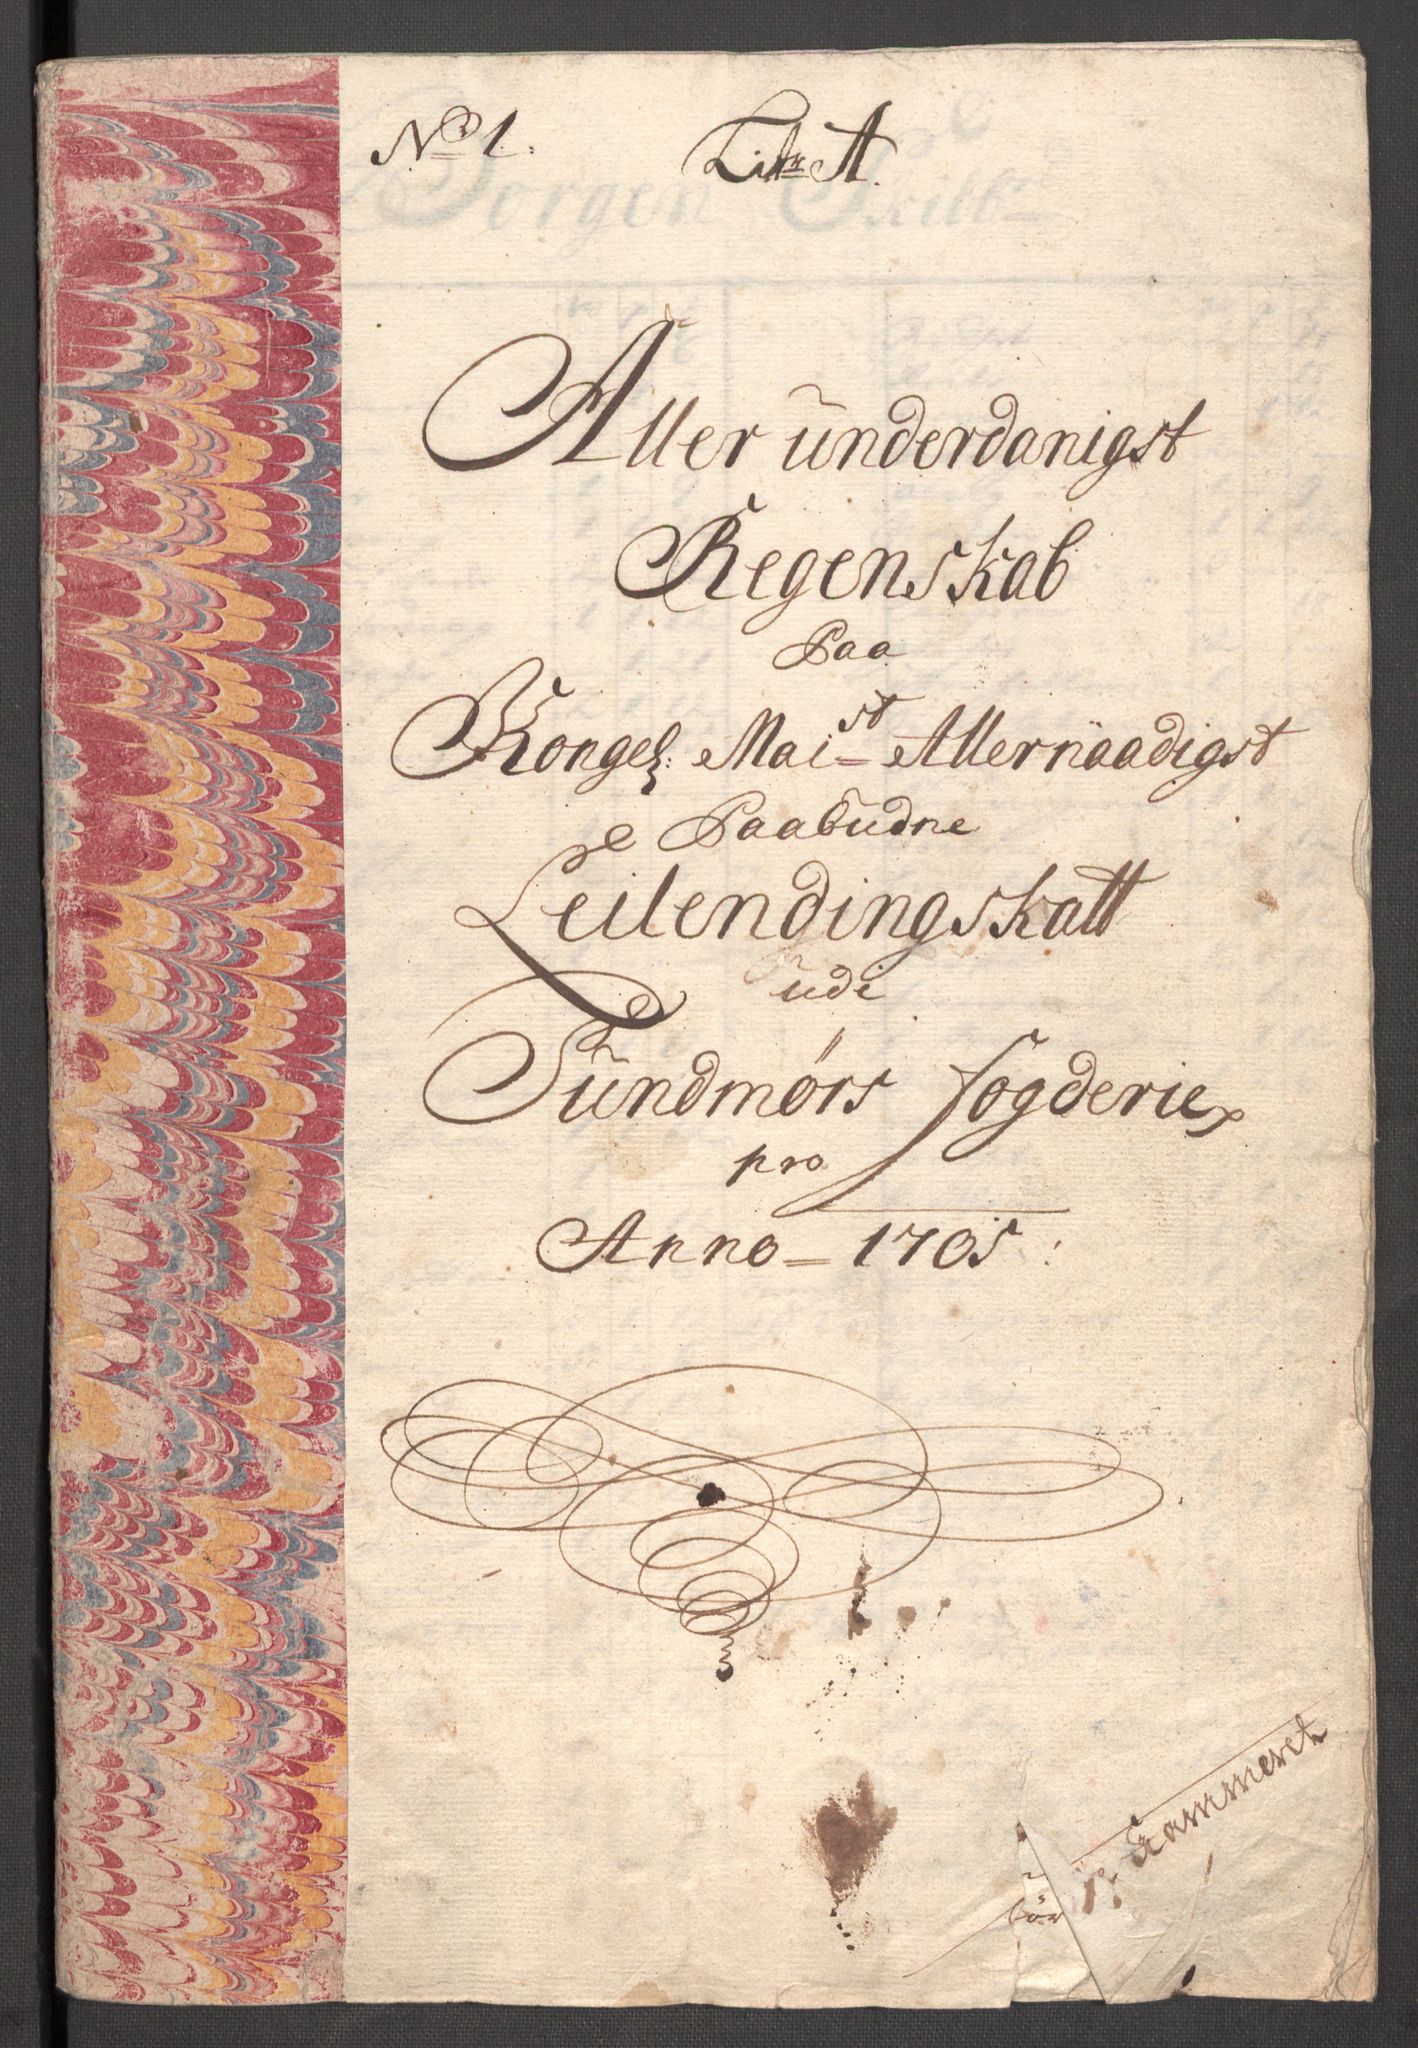 No 1. Litr A.
Aller underdanigst
Regenskab
Paa
Kongel: Maist Allernaadigst
Paabudne
Leilendingskatt
udi
Sundmørs fogderie
pro
Anno - 1705 :